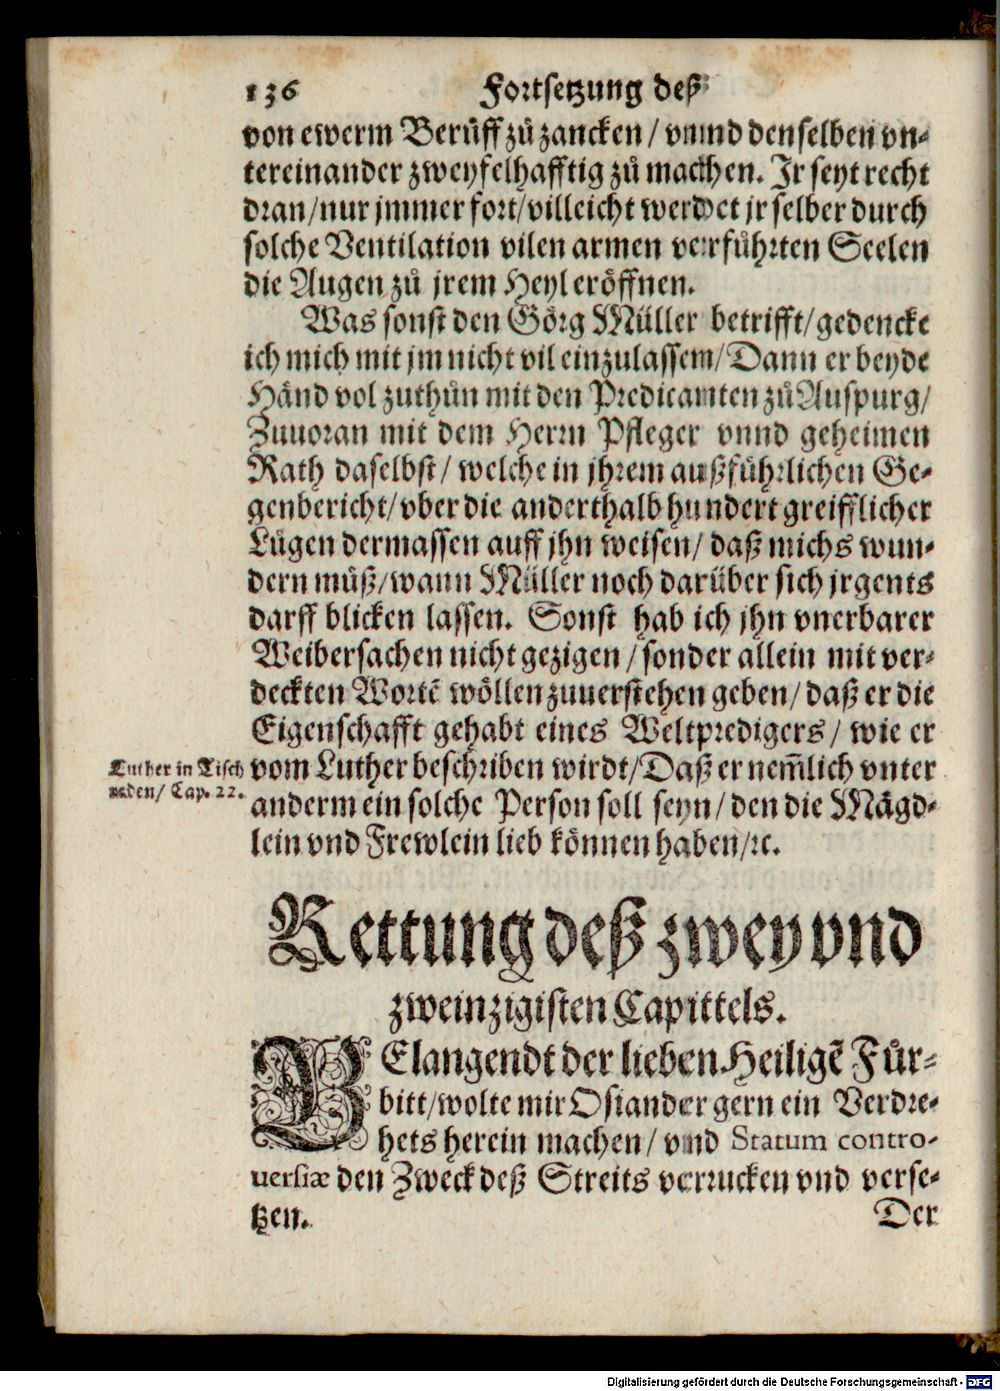 136 Fortsetzung deß
von ewerm Berůff zů zancken / vnnd denselben vn-
tereinander zweyfelhafftig zů machen. Jr seyt recht
dran / nur jmmer fort / villeicht werdet jr selber durch
solche Ventilation vilen armen verfůhrten Seelen
die Augen zů jrem Heyl eröffnen.
Was sonst den Görg Müller betrifft / gedencke
ich mich mit jm nicht vil einzulassem / Dann er beyde
Händ vol zuthůn mit den Predicamten zů Auspurg /
Zuuoran mit dem Herrn Pfleger vnnd geheimen
Rath daselbst / welche in jhrem außfůhrlichen Ge-
genbericht / vber die anderthalb hundert greifflicher
Lügen dermassen auff jhn weisen / daß michs wun-
dern můß / wann Müller noch darüber sich jrgents
darff blicken lassen. Sonst hab ich jhn vnerbarer
Weibersachen nicht gezigen / sonder allein mit ver-
deckten Wortē wöllen zuuerstehen geben / daß er die
Eigenschafft gehabt eines Weltpredigers / wie er
Luther in Tisch
reden / Cap. 22.
vom Luther beschriben wirdt / Daß er nem̃lich vnter
anderm ein solche Person soll seyn / den die Mägd-
lein vnd Frewlein lieb können haben / ꝛc.
Rettung deß zwey vnd
zweinzigisten Capittels.
BElangendt der lieben Heiligē Fůr-
bitt / wolte mir Osiander gern ein Verdre-
hets herein machen / vnd Statum contro-
uersiæ den Zweck deß Streits verrucken vnd verse-
tzen.
Der
Digitalisierung gefördert durch die Deutsche Forschungsgemeinschaft - DFG